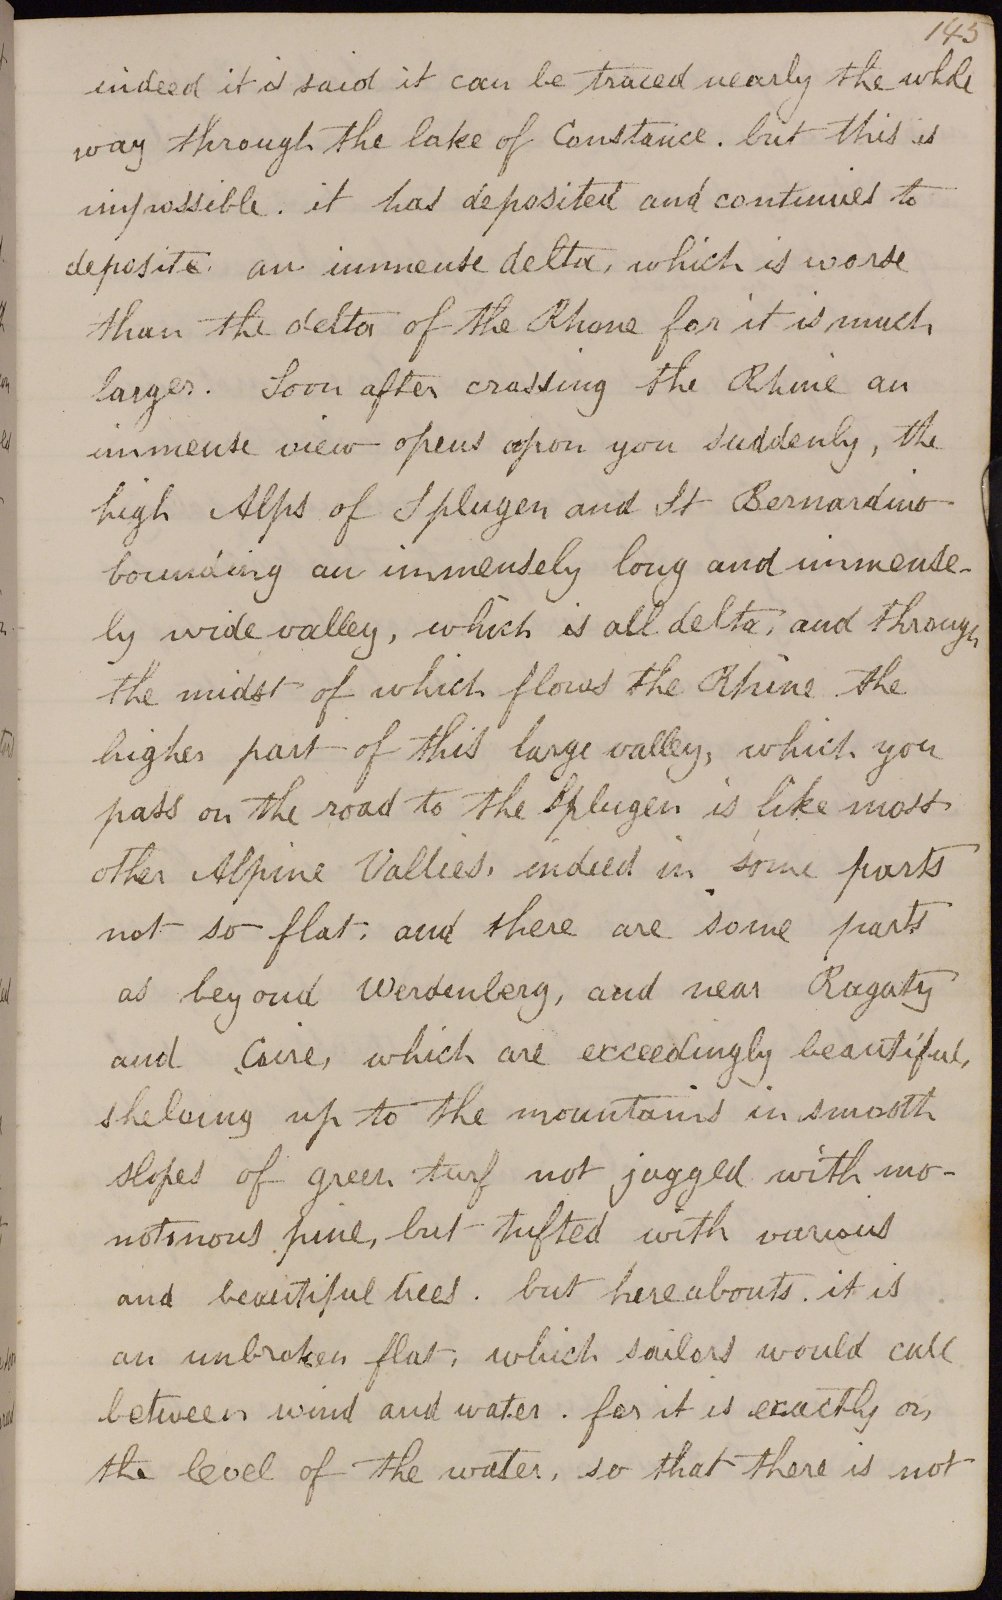 145
indeed it is said it can be traced nearly the whole
way through the lake of Constance. but this is
impossible. it has deposited and continues to
deposite. an immense delta, which is worse
than the delta of the Rhone for it is much
larger. Soon after crossing the Rhine an
immense view opens upon you suddenly, the
high Alps of Splugen and St Bernardino
bounding an immensely long and immense-
ly wide valley, which is all delta, and through
the midst of which flows the Rhine the
higher part of this large valley, which you
pass on the road to the Splugen is like most
other Alpine Vallies, indeed in some parts
not so flat, and there are some parts
as beyond Werdenberg, and near Ragatz
and Coire, which are exceedingly beautiful,
shelving up to the mountains in smooth
slopes of green turf not jagged with mo-
notonous pine, but tufted with various
and beautiful trees. but hereabouts. it is
an unbroken flat, which sailors would call
between wind and water. for it is exactly on
the level of the water, so that there is not